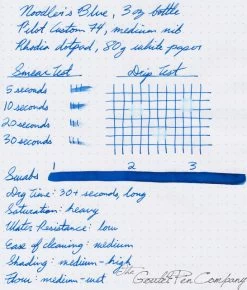 Noodler's Blue, 3 oz bottle
Pilot Custom 74, medium nib
Rhodia dotpad, 80g white paper
Smear Test Drip Test
5 seconds
10 seconds
20 seconds
30 seconds
Swabs 1 2 3
Dry Time: 30+ seconds, long
Saturation: heavy
Water Resistance: low
Ease of cleaning: medium
Shading: medium-high
Flow: medium-wet
The Goulet Pen Company